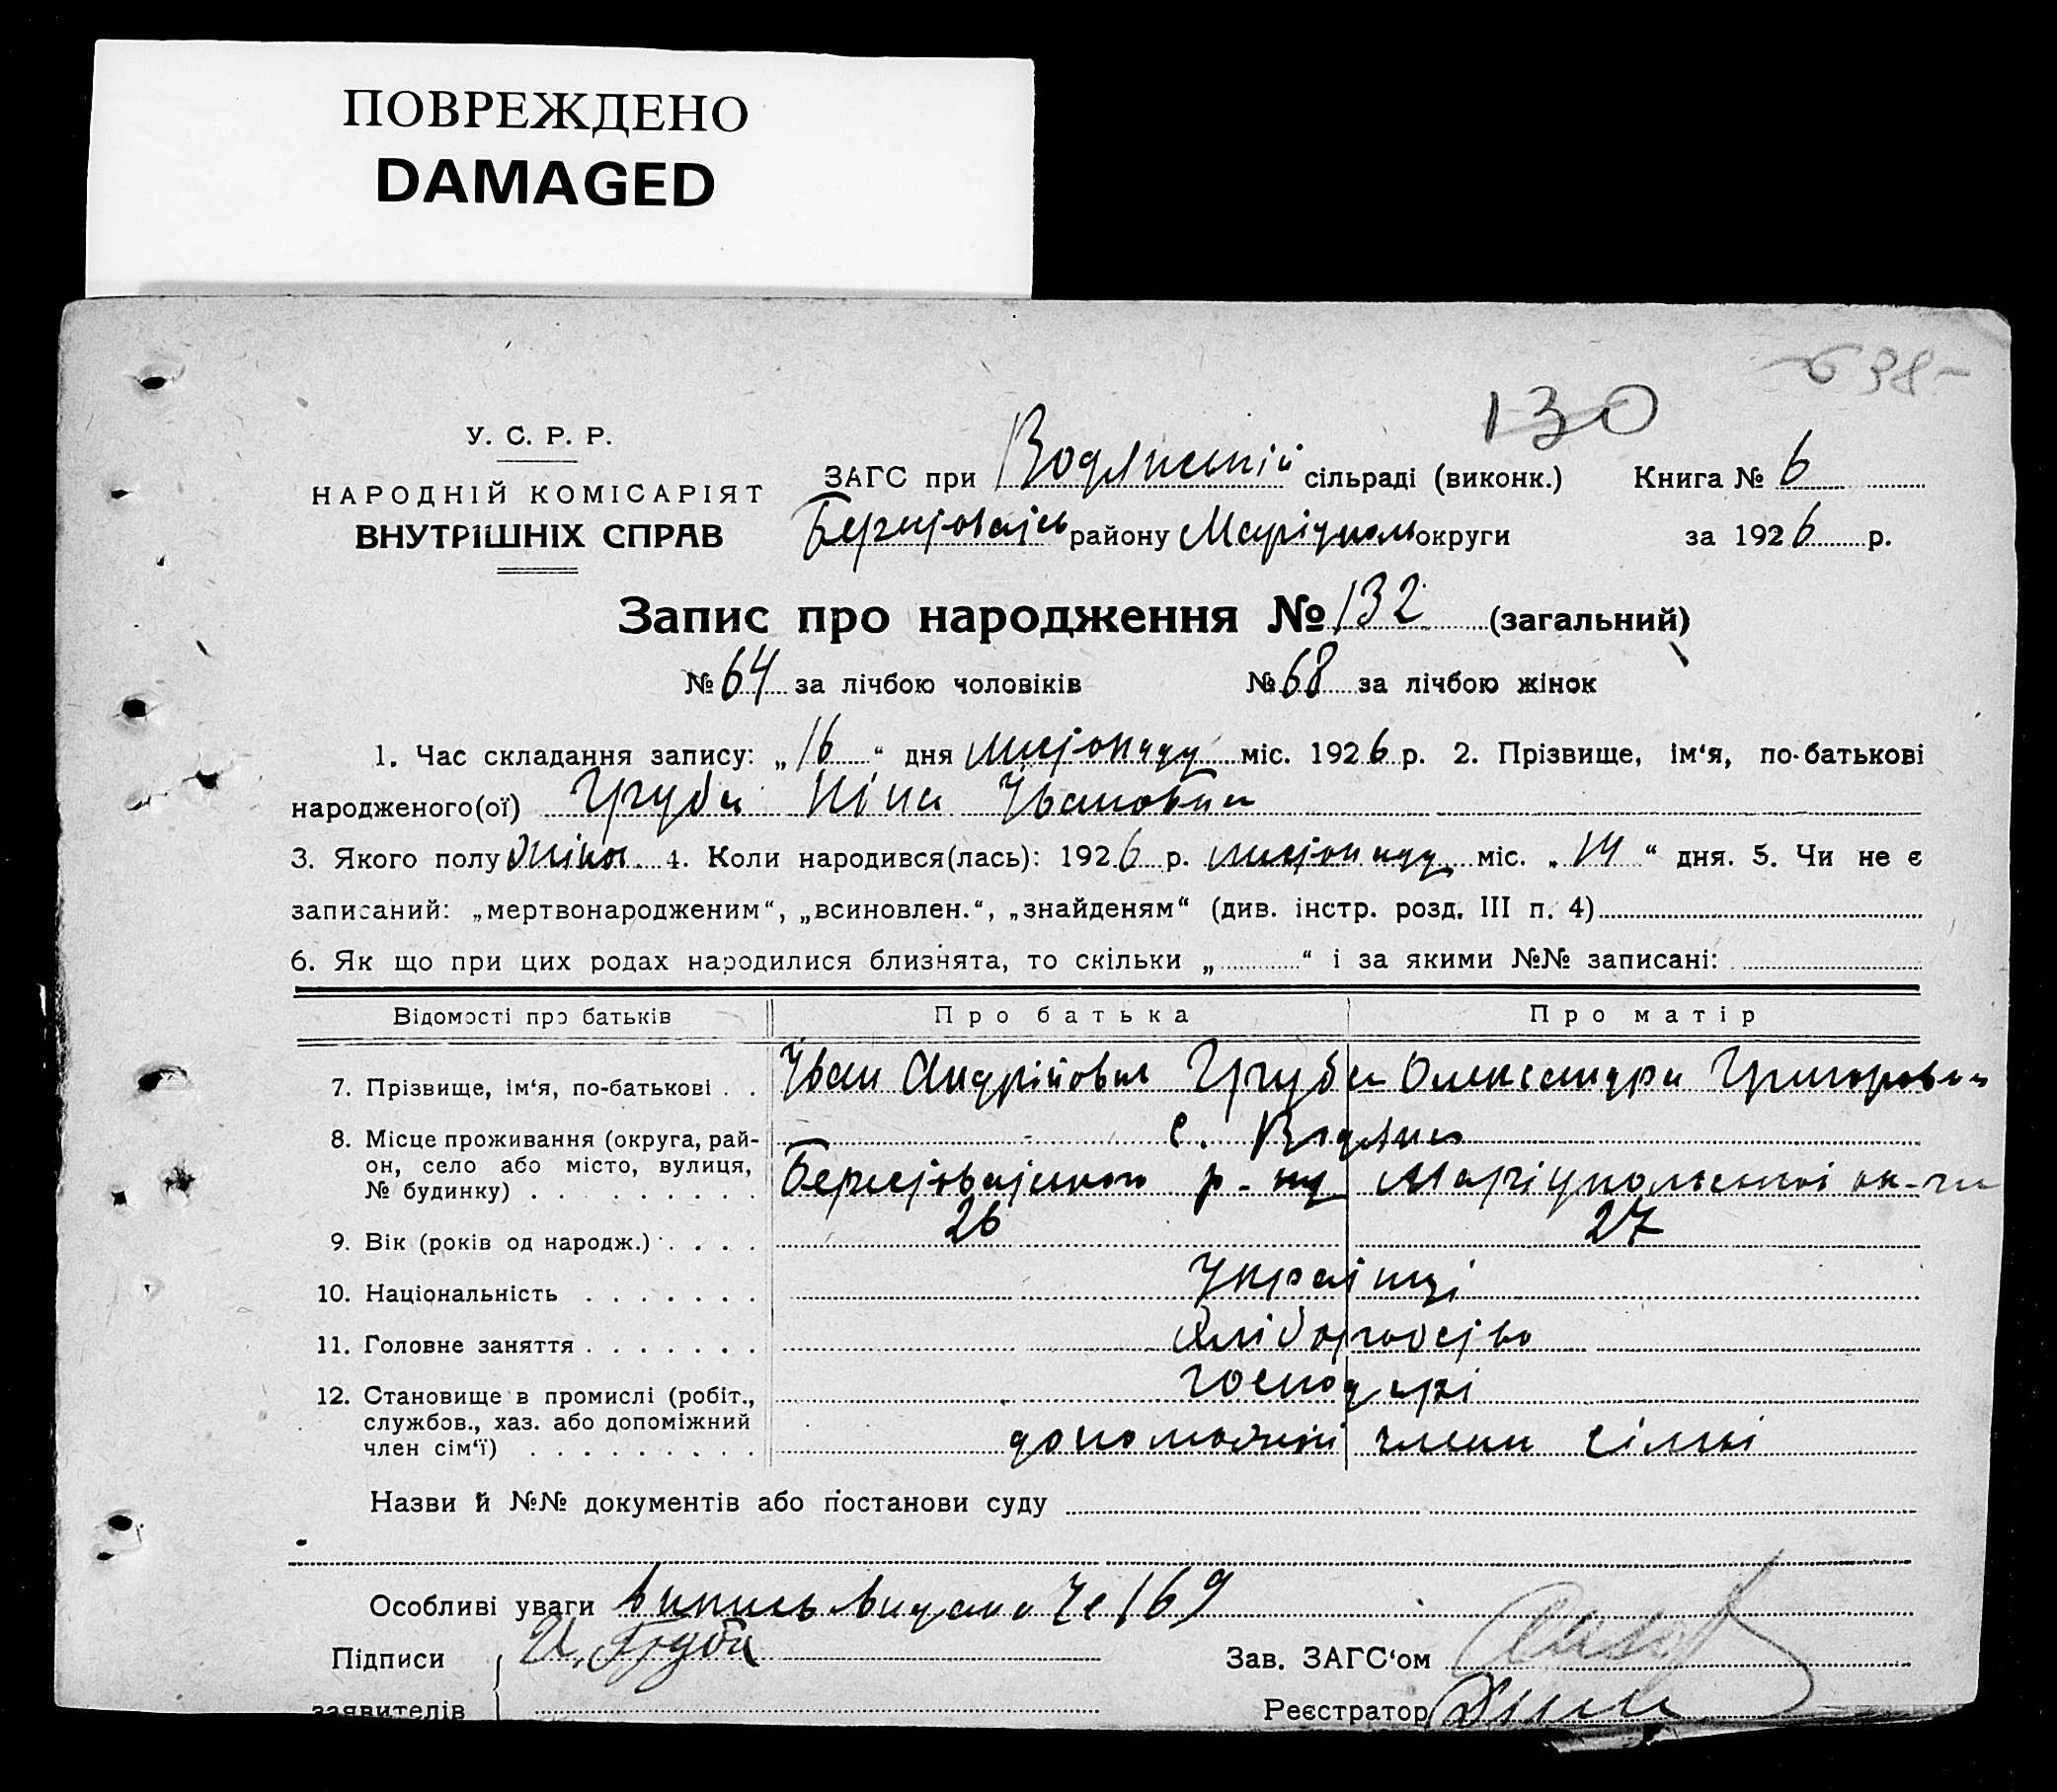 ПОВРЕЖДЕНО
DAMAGED
-638-
130
У. С. Р. Р.
НАРОДНІЙ КОМІСАРІЯТ
ВНУТРІШНІХ СПРАВ
ЗАГС при Водянській сільраді (виконк.) Книга № 6
району Маріупольокруги за 1926 р.
Запис про народження № 132 (загальний)
№ 64 за лічбою чоловіків № 68 за лічбою жінок
1. Час складання запису: „16“ дня листопаду міс. 1926 р. 2. Прізвище, ім‘я, по-батькові
народженого(ої) Груба Ніна Івановна
3. Якого полу жіноч. 4. Коли народився(лась): 1926 р. листопаду міс. „14“ дня. 5. Чи не є
записаний: „мертвонародженим“, „всиновлен.“, „знайденям“ (див. інстр. розд. III п. 4)
6. Як що при цих родах народилися близнята, то скільки „ “ і за якими №№ записані:
Відомості про батьків Про батька Про матір
7. Прізвище, ім‘я, по-батькові . . Іван Андрійович Груба Олександра Григоровна
8. Місце проживання (округа, рай-
он, село або місто, вулиця,
№ будинку) . . . . . . . . .
с. Водяна
р-ну Маріупольської ок-ги
9. Вік (років од народж.) . . . . 26 27
10. Національність . . . . . . . Українці
11. Головне заняття . . . . . . . Хліборобство
12. Становище в промислі (робіт.,
службов., хаз. або допоміжний
член сім‘ї) . . . . . . . . .
господарі
допоможні члени сімьі
Назви й №№ документів або постанови суду
Особливі уваги Випись видана № 169
Підписи И. Груба Зав. ЗАГС‘ом
заявителів Реєстратор